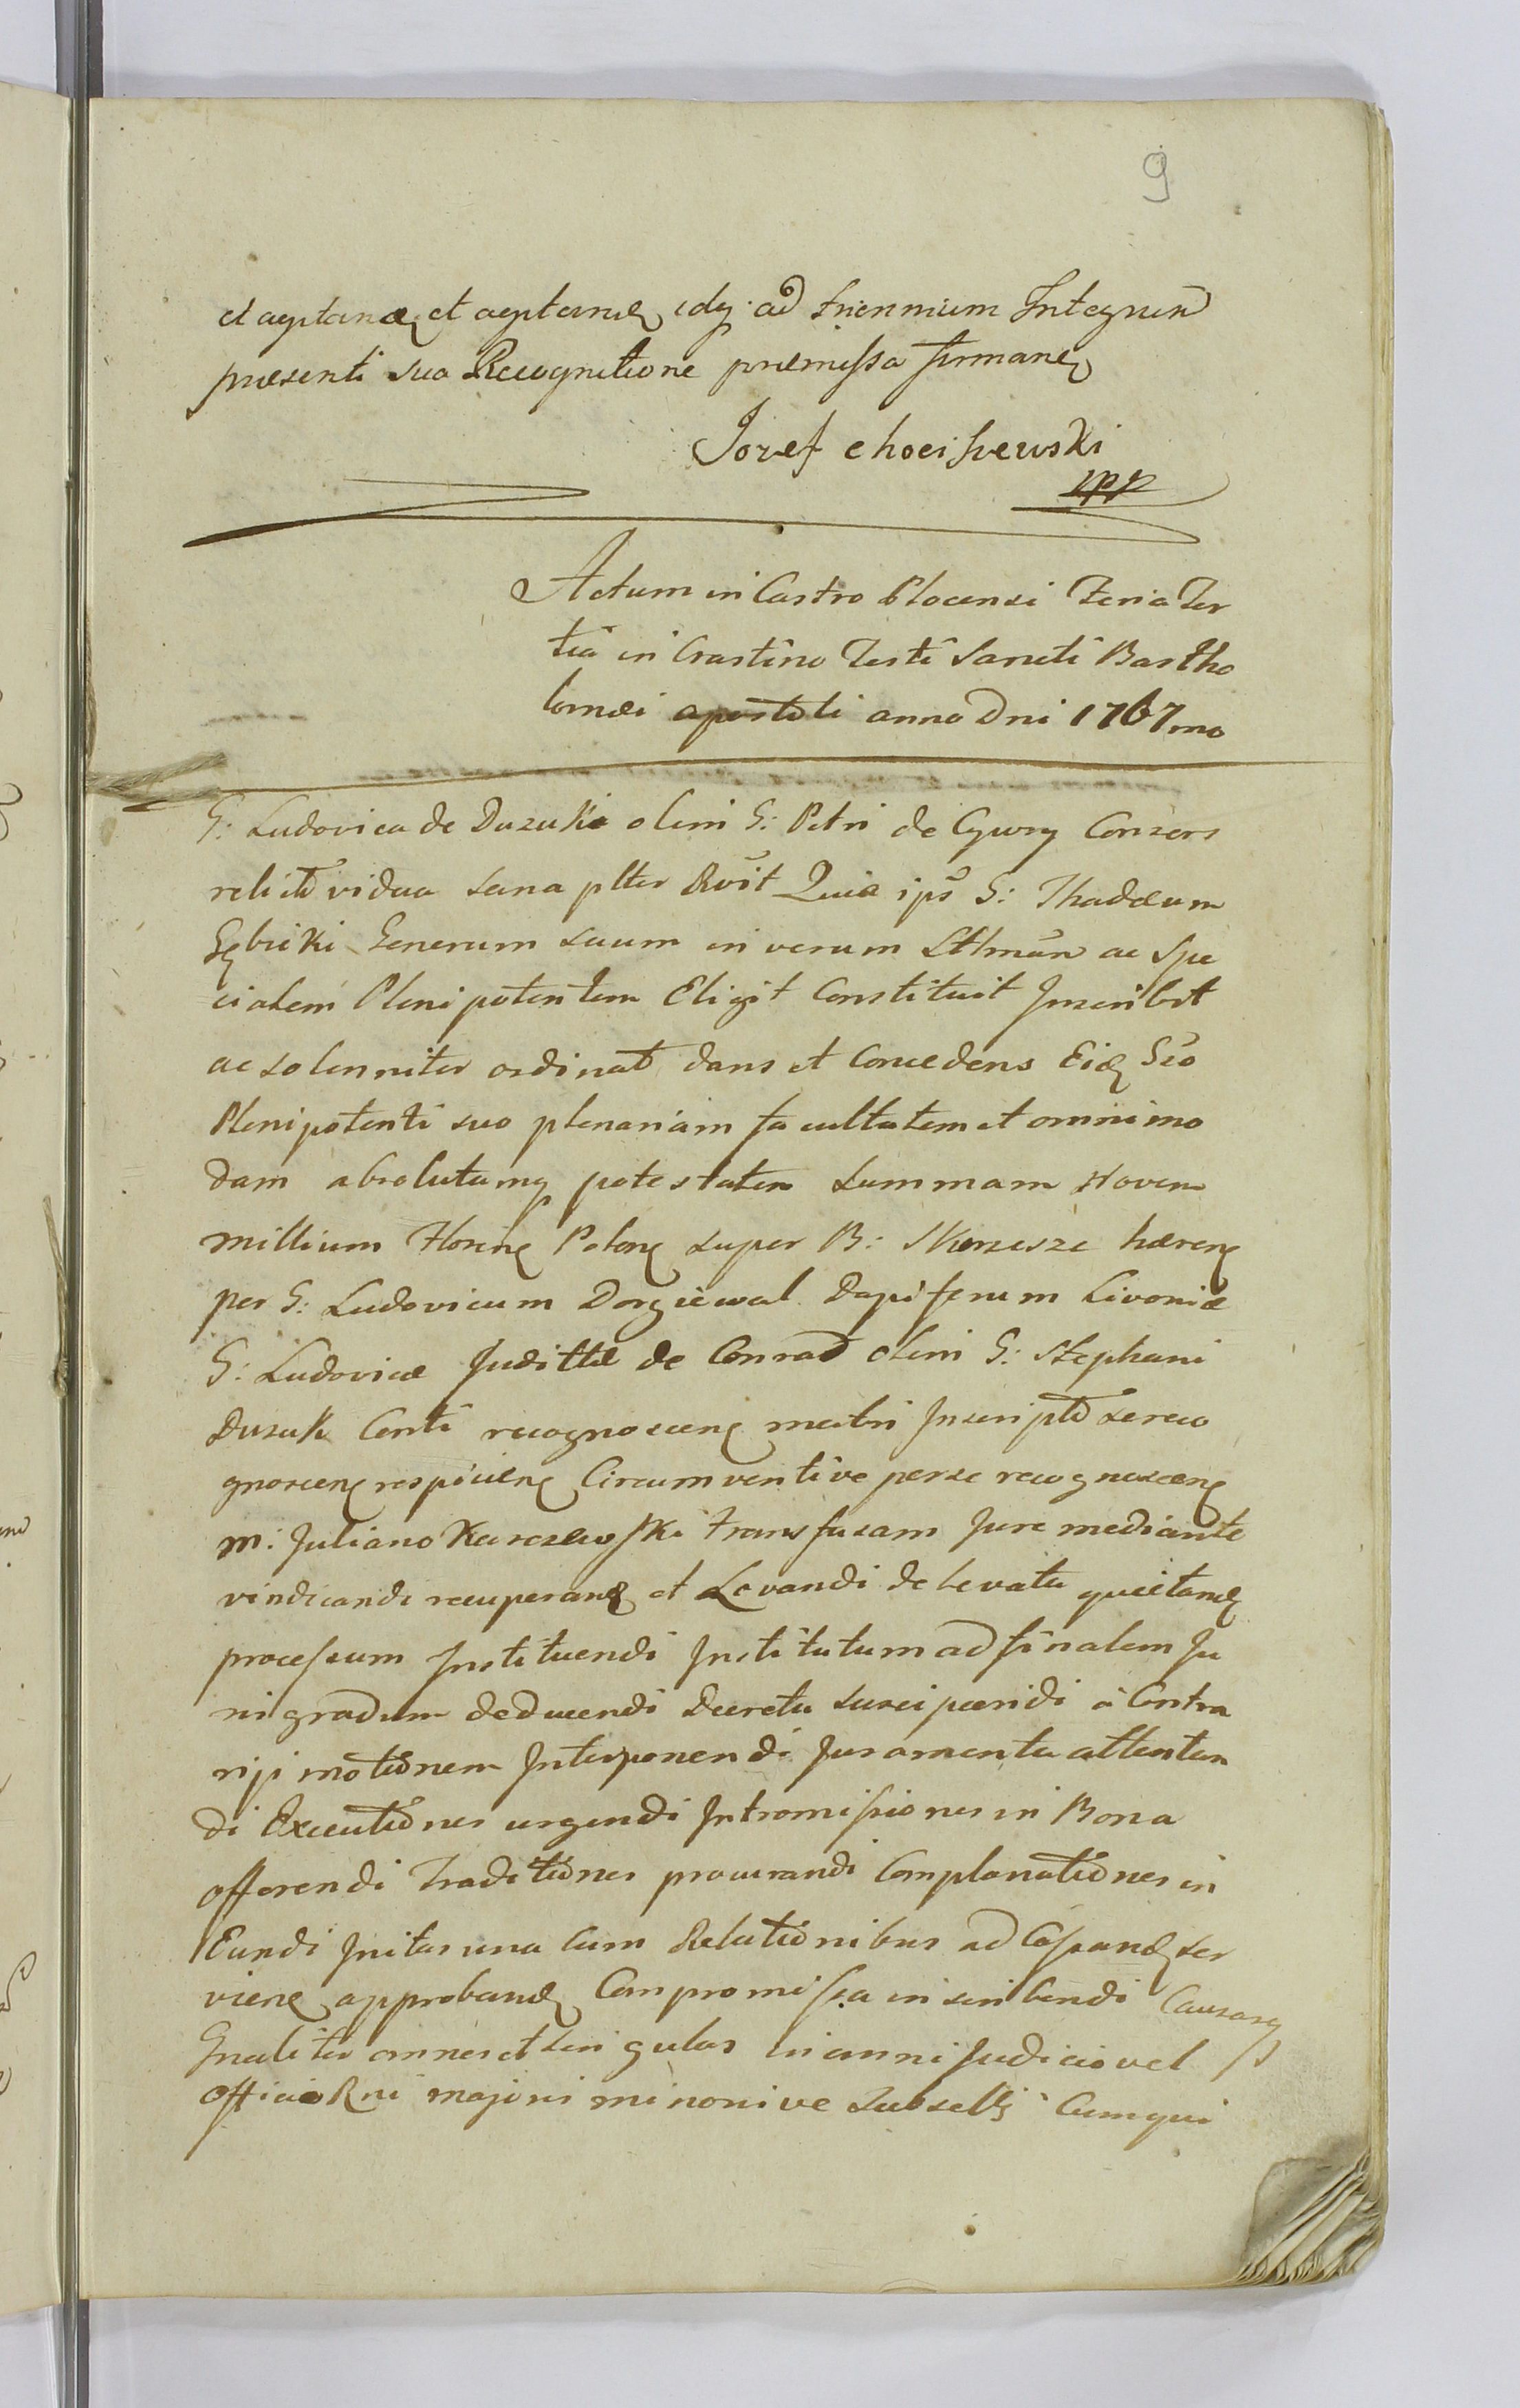 9
et aptand et aptand idq ad triennium Integrum
præsenti sua Recognitione præmissa firmand
Jozef Choeiszewski
mpp
Actum in Castro Plocensi Feria Ter
tia in Crastino Festi Sancti Bartho
lomæi apostoli anno Dni 1767mo
G: Ludovica de Duzuki olim G: Petri de Cywy Consors
relicta vidua sana plter Rvit Quia ips G: Thadæum
Gębicki Generum suum in verum Lttmum ac Spe
cialem Plenipotentem Eligit Constituit Inscribit
ac solenniter ordinat dans et Concedens Eid Gso
Plenipotenti suo plenariam facultatem et omnimo
dam absolutamq potestatem Summam Novem
millium Floren Polon super B: Skorzesze hæren
per G: Ludovicum Dorgiewal Dapiferum Livoniæ
G: Ludovicæ Judittæ de Conrad olim G: Stephani
Duzuk Conti recognoscen matri Inscriptam Sereco
gnoscen respicien Circumventive per se recognoscen
M: Juliano Karczewski transfusam Jure mediante
vindicandi recuperand et Levandi de levata quietand
processum Instituendi Institutum ad finalem Ju
ris gradum deducendi Decreta suscipiendi à Contra
riji motionem Interponendi Juramenta attentan
di Executiones urgendi Intromissiones in Bona
offerendi Traditiones procurandi Complanationes in
Eundi Initas una cum Relationibus ad Cassand ser
vien approband Compromissa inscribendi Causasq
Gnaliter omnes et singulas in omni Judicio vel
officio Rni majori minorive Subsellij Cumqui